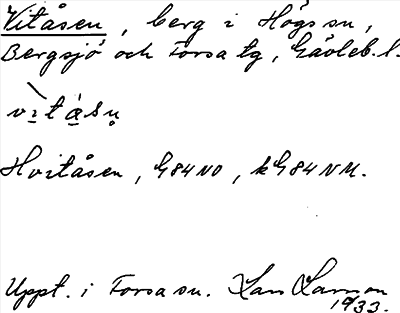 Vitåsen, berg i Högs sn,
Bergsjö och Forsa tg, Gävleb. l.
vìtá̱sṇ
Hvitåsen, G84NO, kG84NM.
Uppt. i Forsa sn. Lars Larsson
1933.